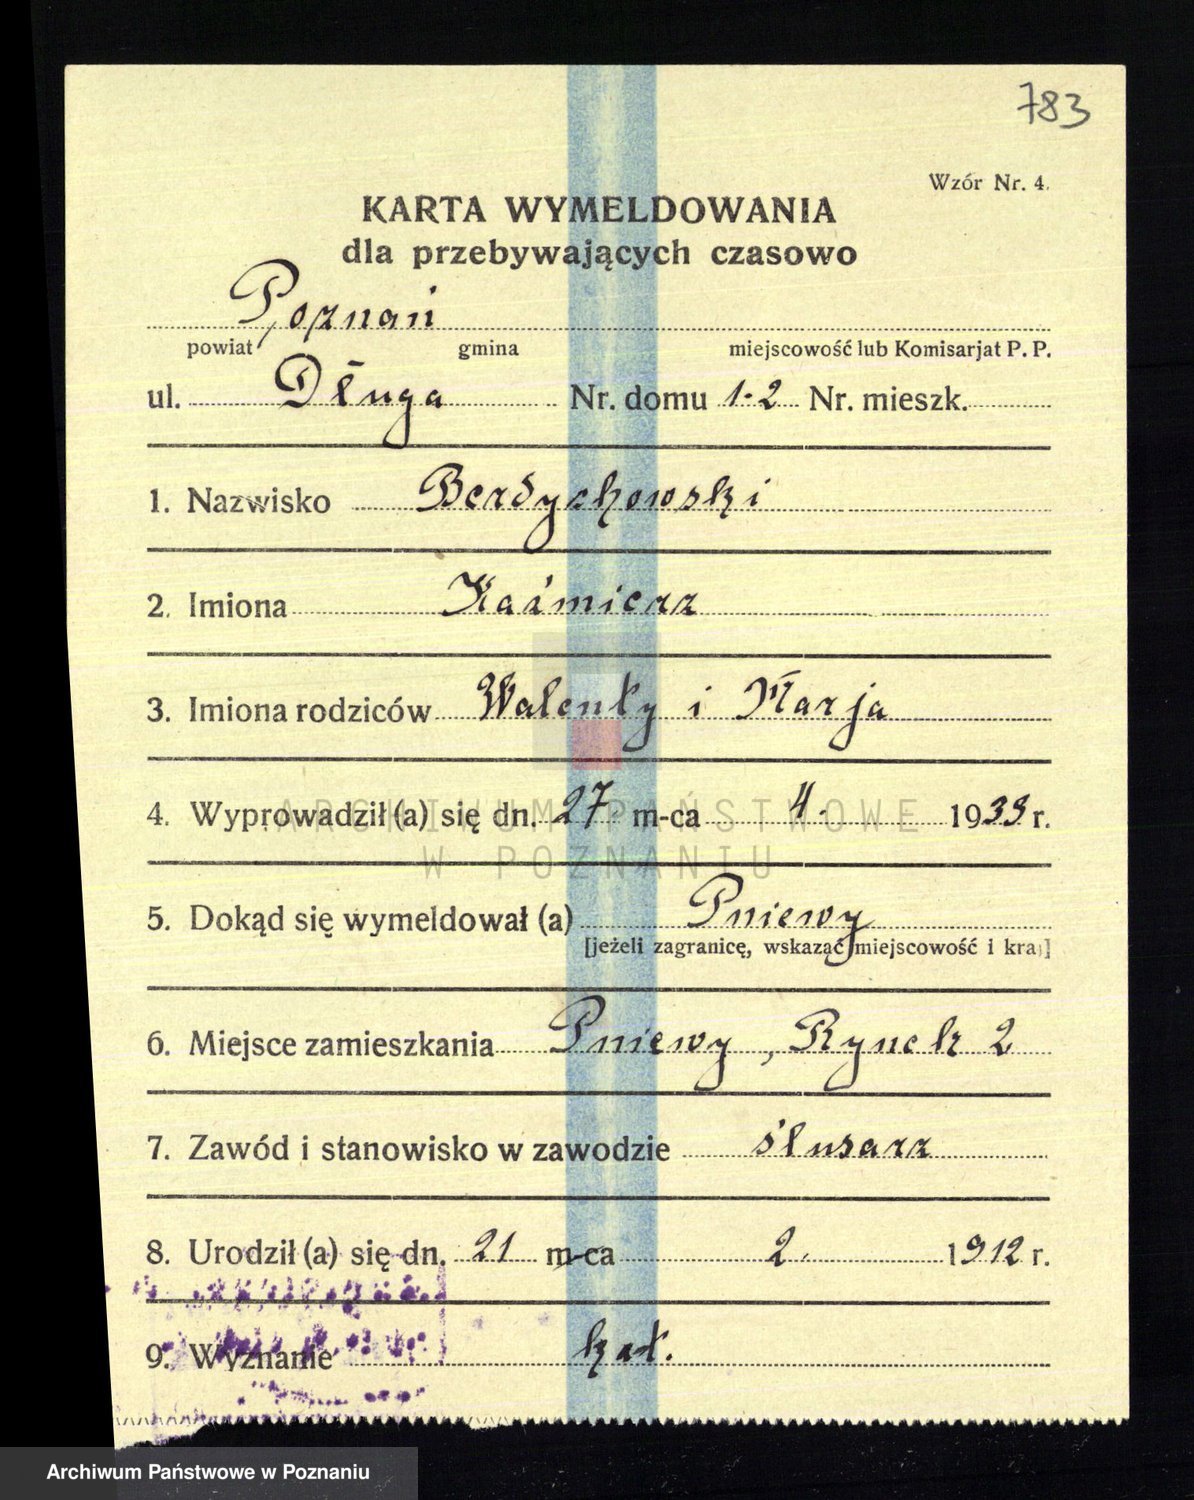 783
Wzór Nr. 4.
KARTA WYMELDOWANIA
dla przebywających czasowo
Poznań
powiat gmina miejscowość lub Komisarjat P. P.
ul. Długa Nr. domu 1-2 Nr. mieszk.
1. Nazwisko Berdychowski
2. Imiona Kaźmierz
3. Imiona rodziców Walenty i Marja
4. Wyprowadził (a) się dn. 27. m-ca 4. 1939 r.
ARCHIWUM PAŃSTWOWE
W POZNANIU
5. Dokąd się wymeldował (a) Pniewy
[jeżeli zagranicę, wskazać miejscowość i kraj]
6. Miejsce zamieszkania Pniewy, Rynek 2
7. Zawód i stanowisko w zawodzie ślusarz
8. Urodził (a) się dn. 21 m-ca 2. 1912 r.
9. Wyznanie kat.
Archiwum Państwowe w Poznaniu